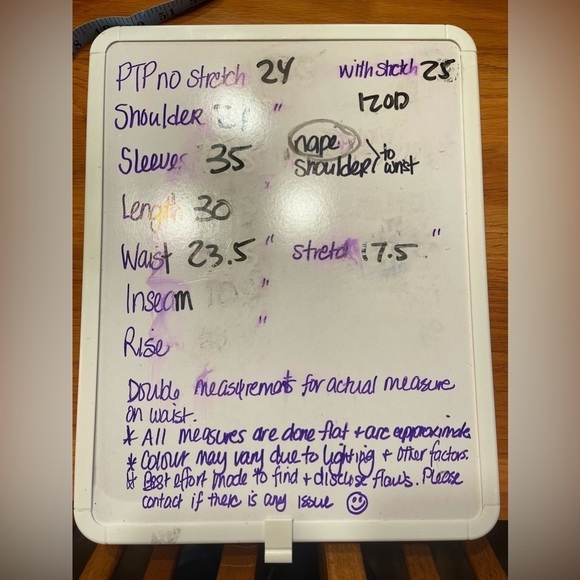 PTP no stretch 24 with stretch 25
IZOD
Shoulder "
Sleeves 35 nape
shoulder > to wrist
Length 30 "
Waist 23.5 " stretch 17.5 "
Inseam "
Rise "
Double measurements for actual measure
on waist.
* All measures are done flat + are approximate
* Colour may vary due to lighting + other factors.
* Best effort made to find + disclose flaws. Please
contact if there is any issue ☺